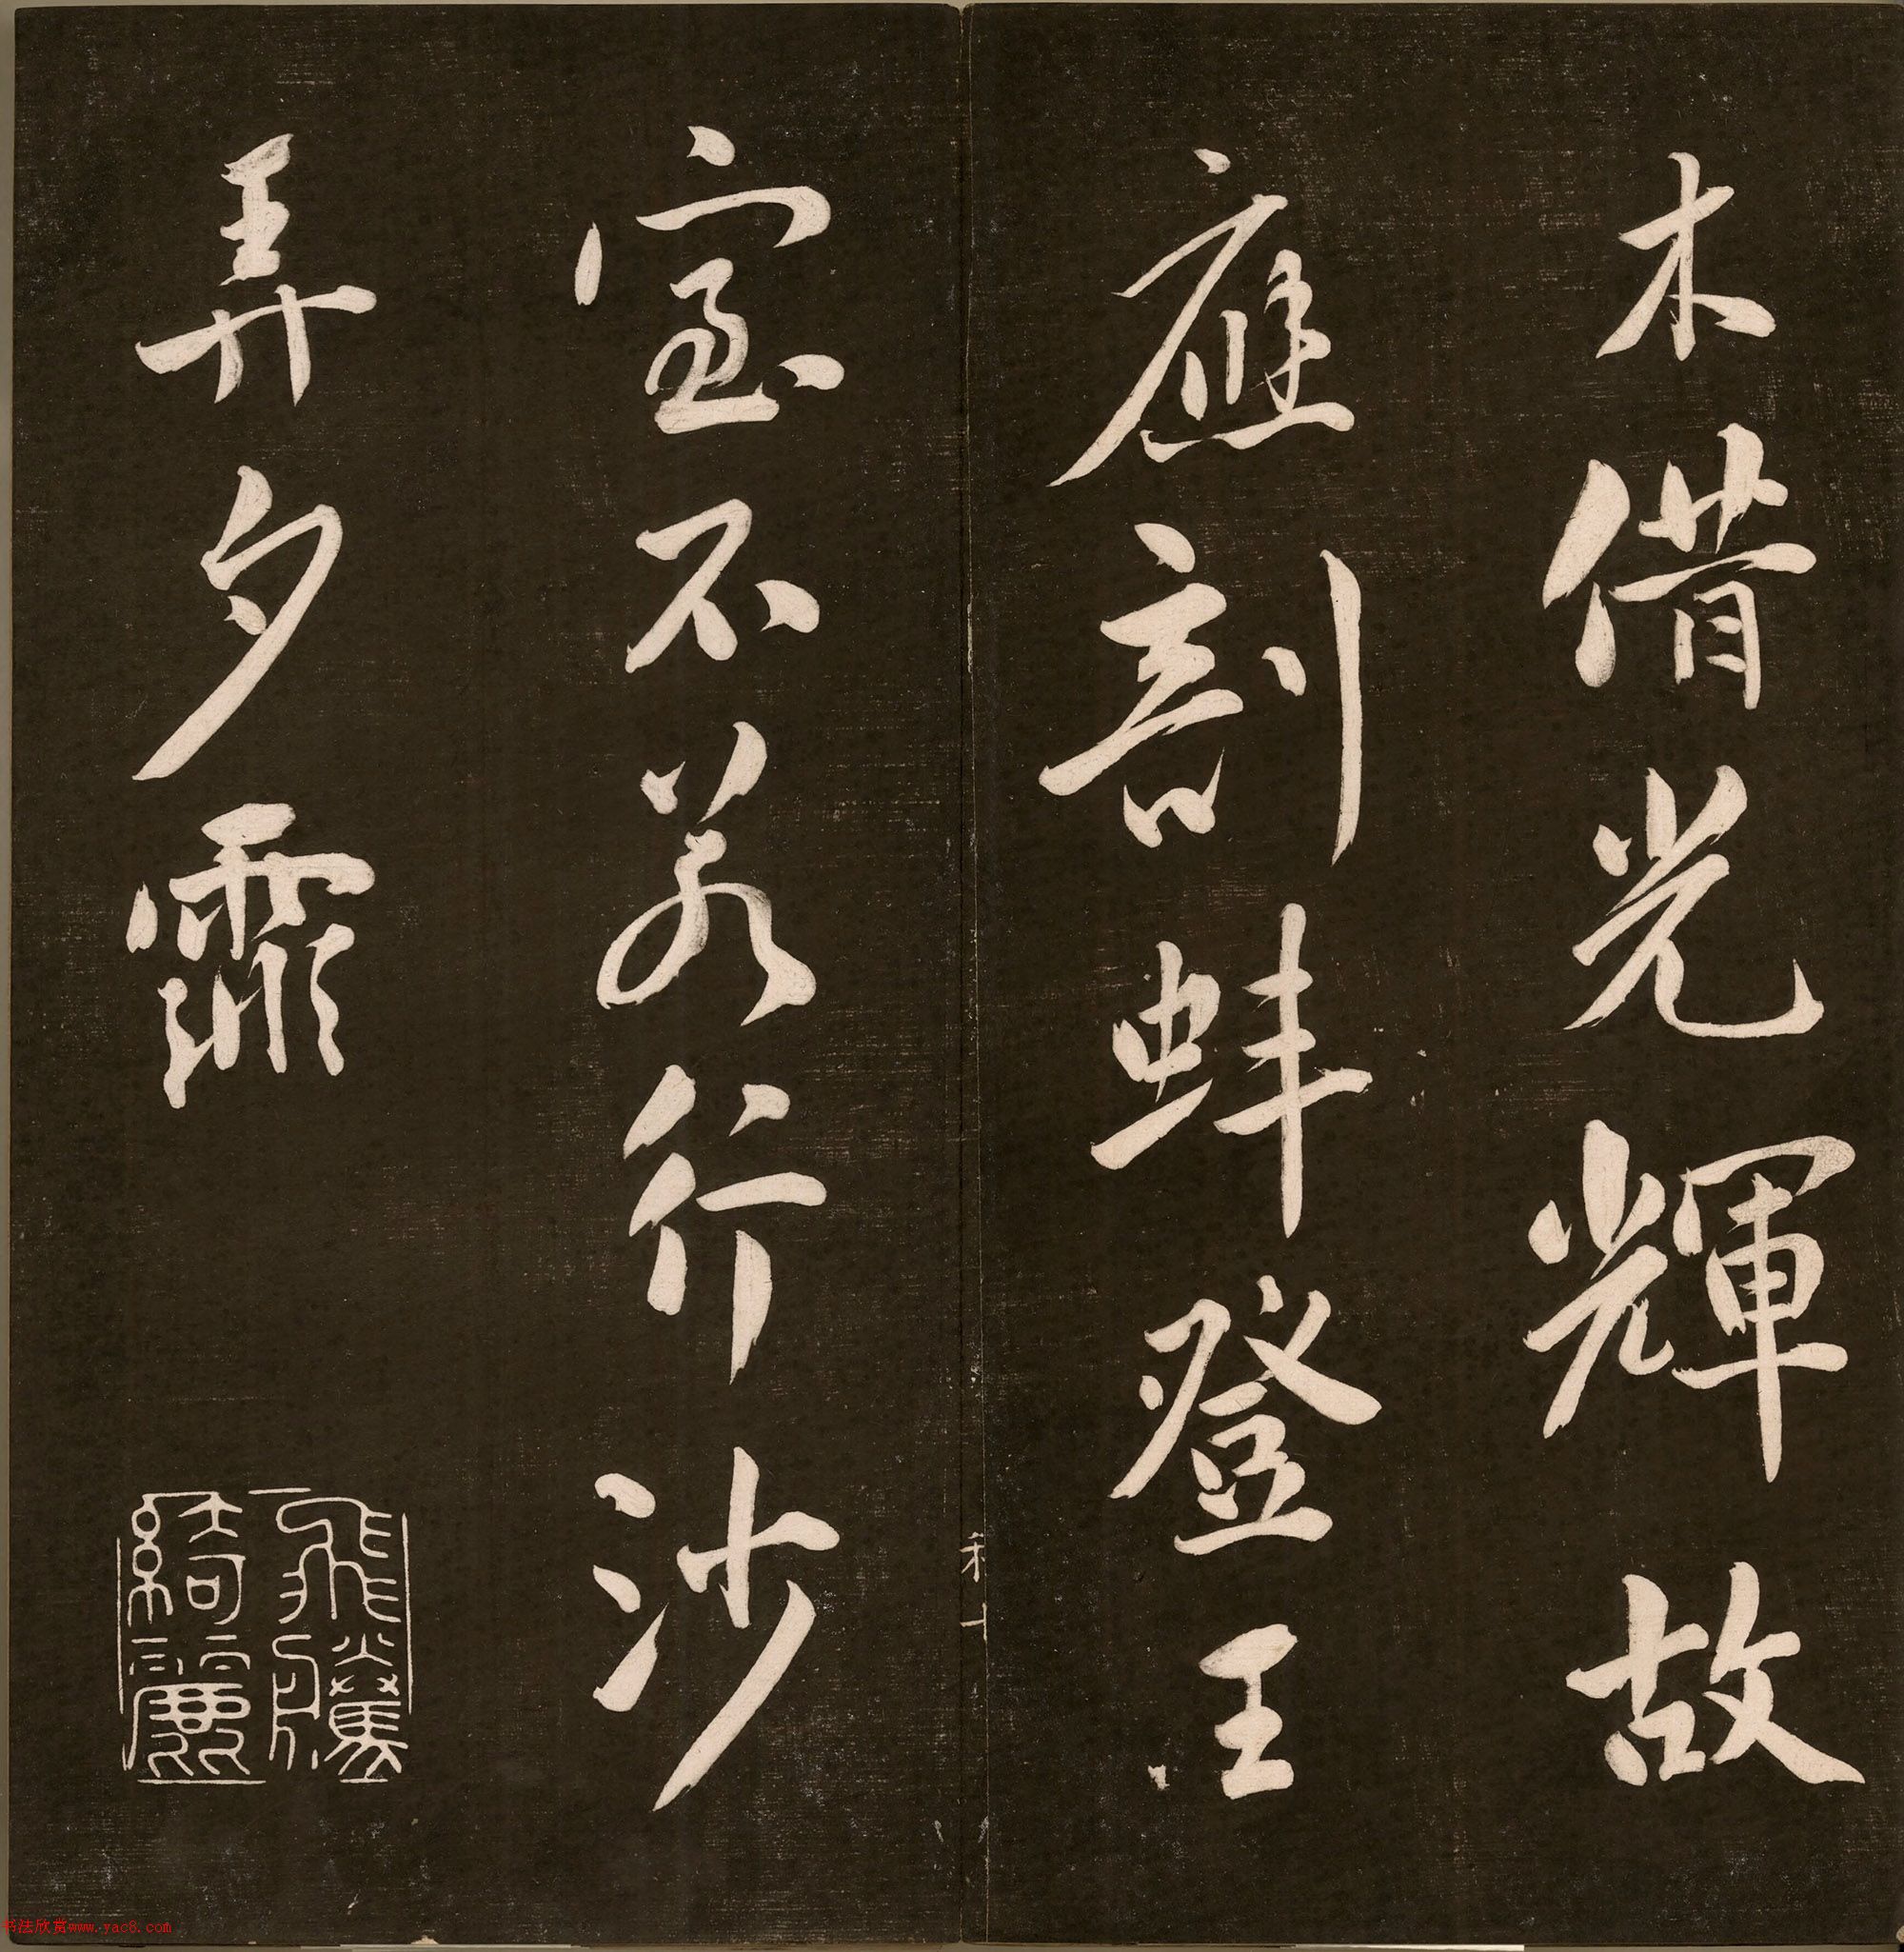 木借光輝故
應剖蚌登王
室不若行沙
弄夕霏
飛騰
綺麗
書法欣賞www.yac8.com